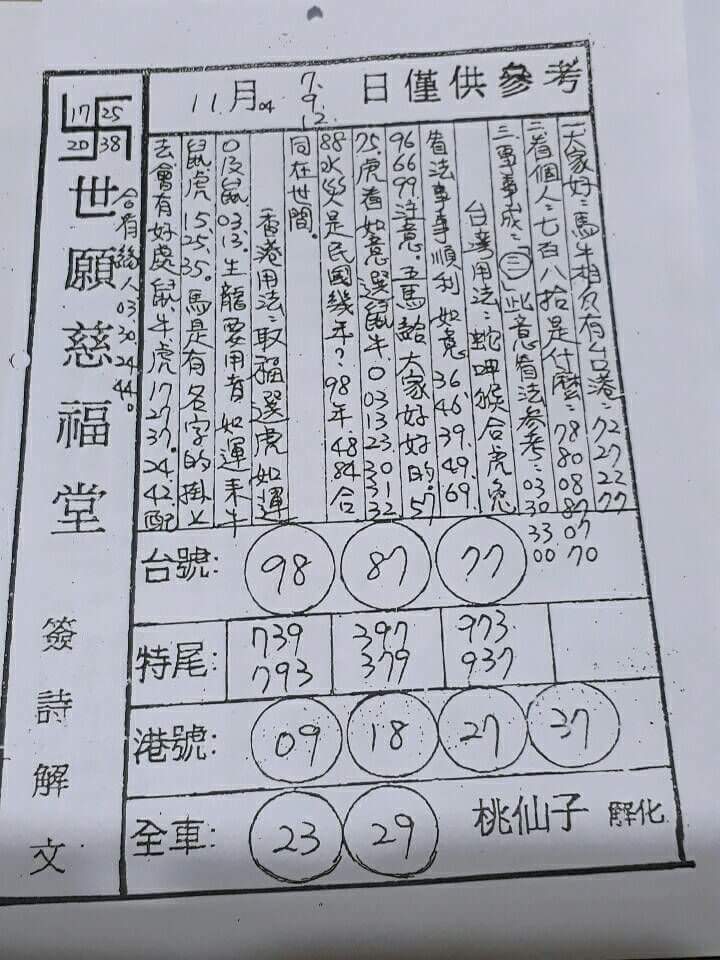 11月 04 7. 9. 12 日僅供參考
一大家好:馬牛相反有台港:72 27 22 77
二看個人:七百八拾是什麼:78 80 08 87 07 70
三事事成:(三)此意看法參考:03 30 33 00
台灣用法:蛇呷猴合虎兔
看法事事順利如意36.46.39.49.69.
96 66 99注意.五馬給大家好好的.57
75.虎看如意選鼠牛0 03 13 23.33.01 32
88水災是民國幾年?98年.48 84合
同在世間。
香港用法:取福選虎如運
0及鼠03.13.生龍要用者如運來牛
鼠虎15.25.35.馬是有名字的掛上
去會有好處鼠牛虎17 27 37.24.42.配
17 25
20 38
世願慈福堂
合有緣人03.30.24.44。
簽詩解文
台號: 98 87 77
特尾: 739 397 973
793 379 937
港號: 09 18 27 37
全車: 23 29 桃仙子 解化